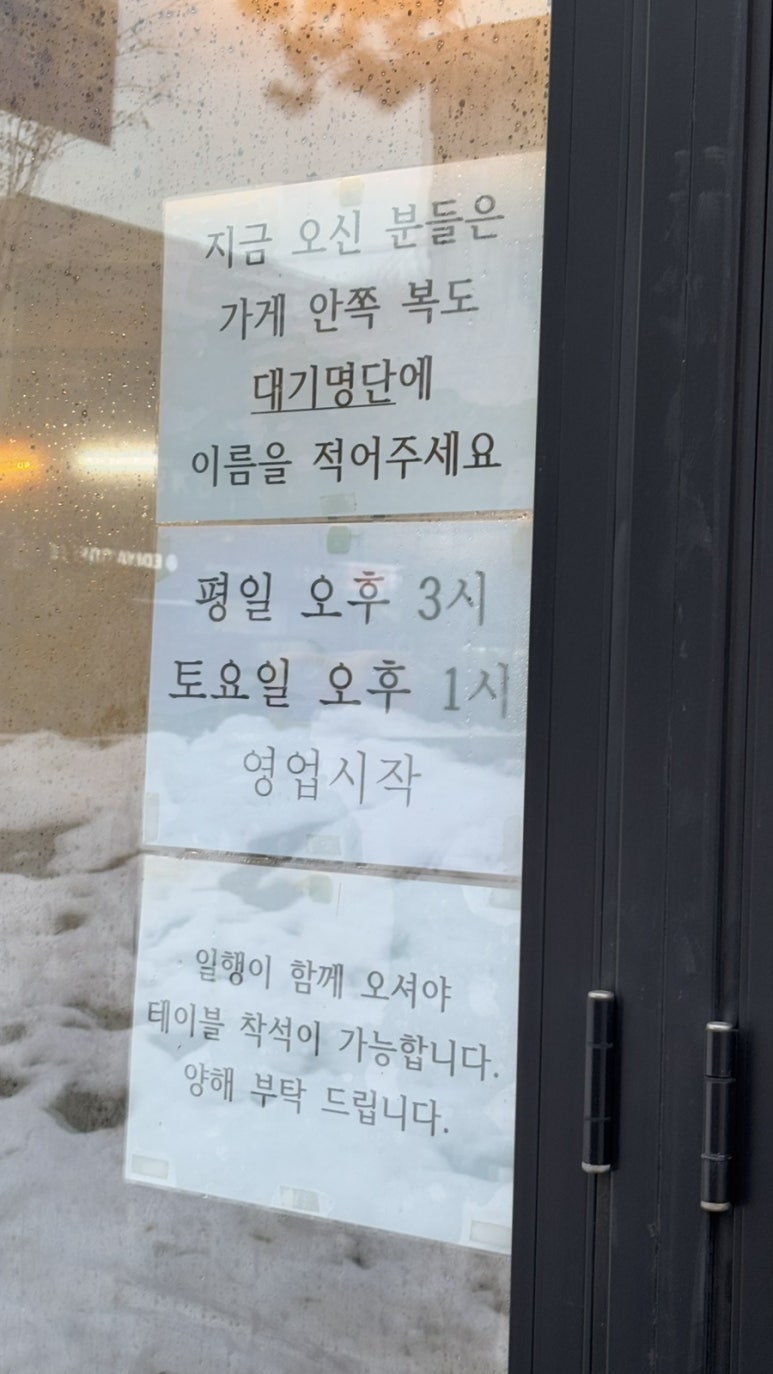 지금 오신 분들은
가게 안쪽 복도
대기명단에
이름을 적어주세요
평일 오후 3시
토요일 오후 1시
영업시작
일행이 함께 오셔야
테이블 착석이 가능합니다.
양해 부탁 드립니다.